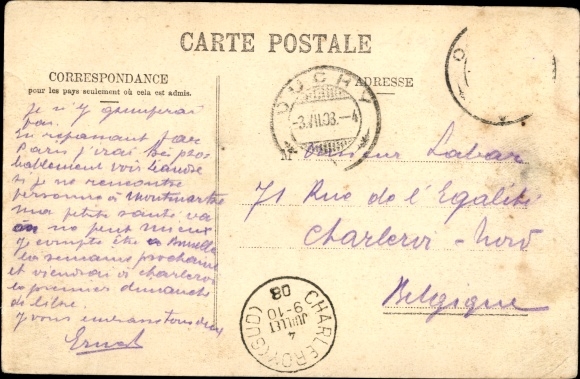 CARTE POSTALE
CORRESPONDANCE
pour les pays seulement où cela est admis.
ADRESSE
OUCHY
-3.VII.08.-4
je n'y
pas.
En repassant par
Paris j'irai
voir
si je ne rencontre
personne à Montmartre
ma petite santé va
on ne peut mieux
J compte être à
la semaine prochaine
et viendrai à Charleroi
le premier dimanche
de libre.
Je vous embrasse tous deux
Ernest
Monsieur Labar
71 Rue de l'Egalité
Charleroi - Nord
Belgique
CHARLEROY (SUD)
4
JUILLET
9-10
08